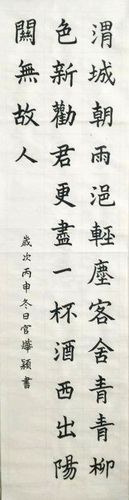 渭城朝雨浥輕塵客舍青青柳
色新勸君更盡一杯酒西出陽
關無故人
歲次丙申冬日官燁穎書